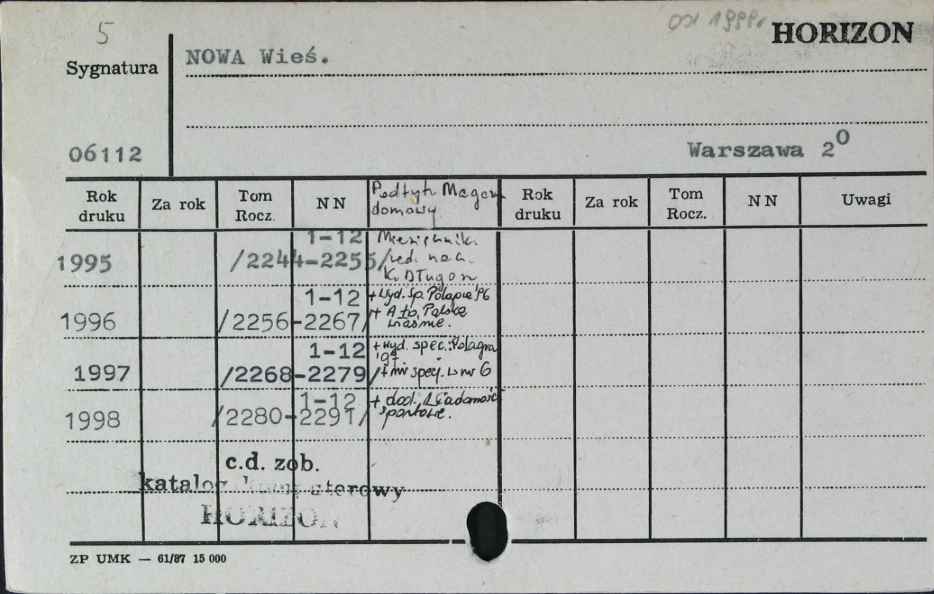 5
od 1999r.
HORIZON
Sygnatura
NOWA Wieś.
06112
Warszawa 2⁰
Rok druku
Za rok
Tom Rocz.
NN
Podtyt. Magaz. domowy
Rok druku
Za rok
Tom Rocz.
NN
Uwagi
1995 /2244-2255/ 1-12
Miesięcznik.
red. nacz.
K. Długosz
1996 /2256-2267/ 1-12
+ Wyd. sp. Polagra '96
+
1997 /2268-2279/ 1-12
+ wyd. spec.: Polagra
'97.
+ nr specj. w nr 6
1998 /2280-2291/ 1-12
+ dod. Wiadomości
sportowe.
c.d. zob.
katalog komputerowy
HORIZON
ZP UMK — 61/87 15 000